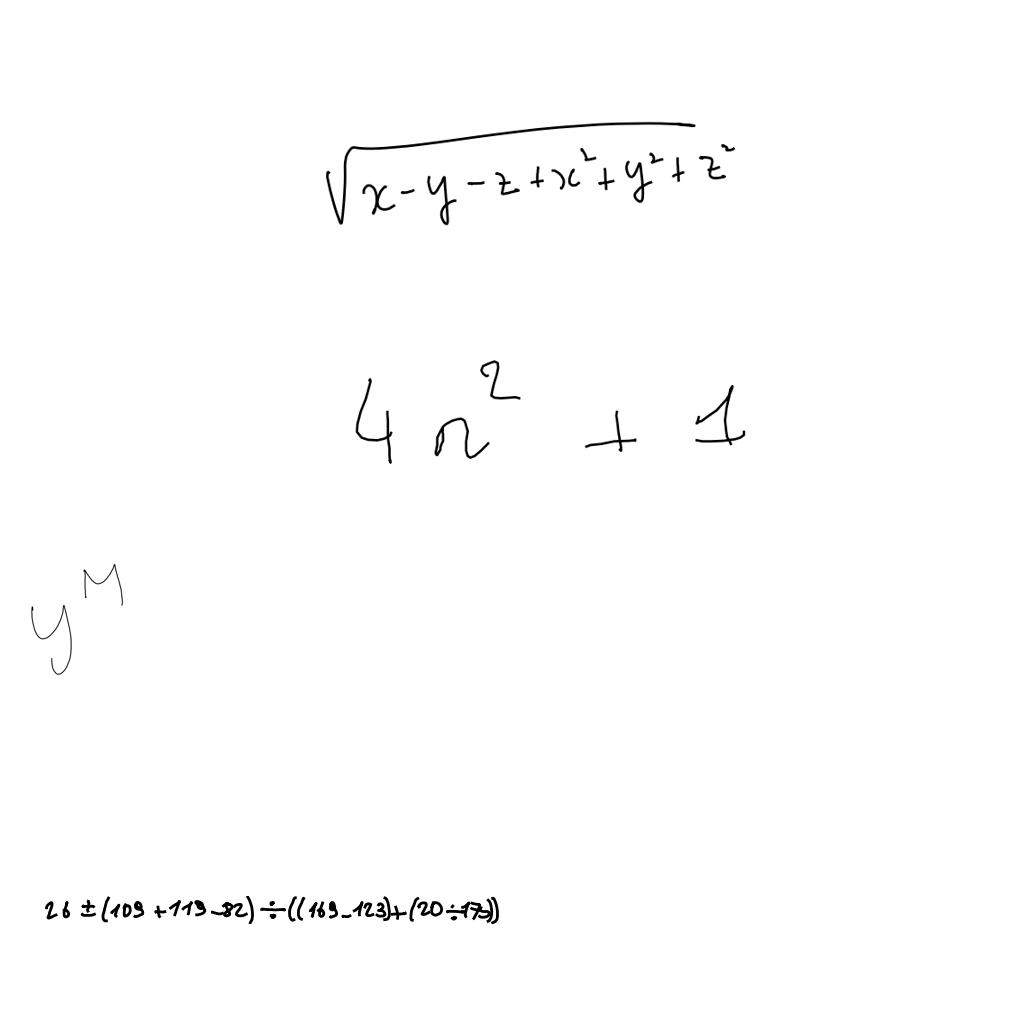 √(x-y-z+x²+y²+z²)
4n² + 1
y^M
26 ± (109 + 119 - 82) ÷ ((169 - 123) + (20 ÷ 17))